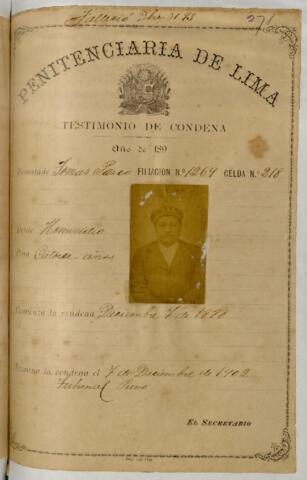 Falleció
271
PENITENCIARIA DE LIMA
TESTIMONIO DE CONDENA
Año de 189
Rematado Tomas FILIACION N.º 1269 CELDA N.º 218
Delito Homicidio
Pena Catorce años
Comenzó la condena Diciembre 7 de 1888
Termina la condena el 7 de Diciembre de 1902
Tribunal Puno
EL SECRETARIO